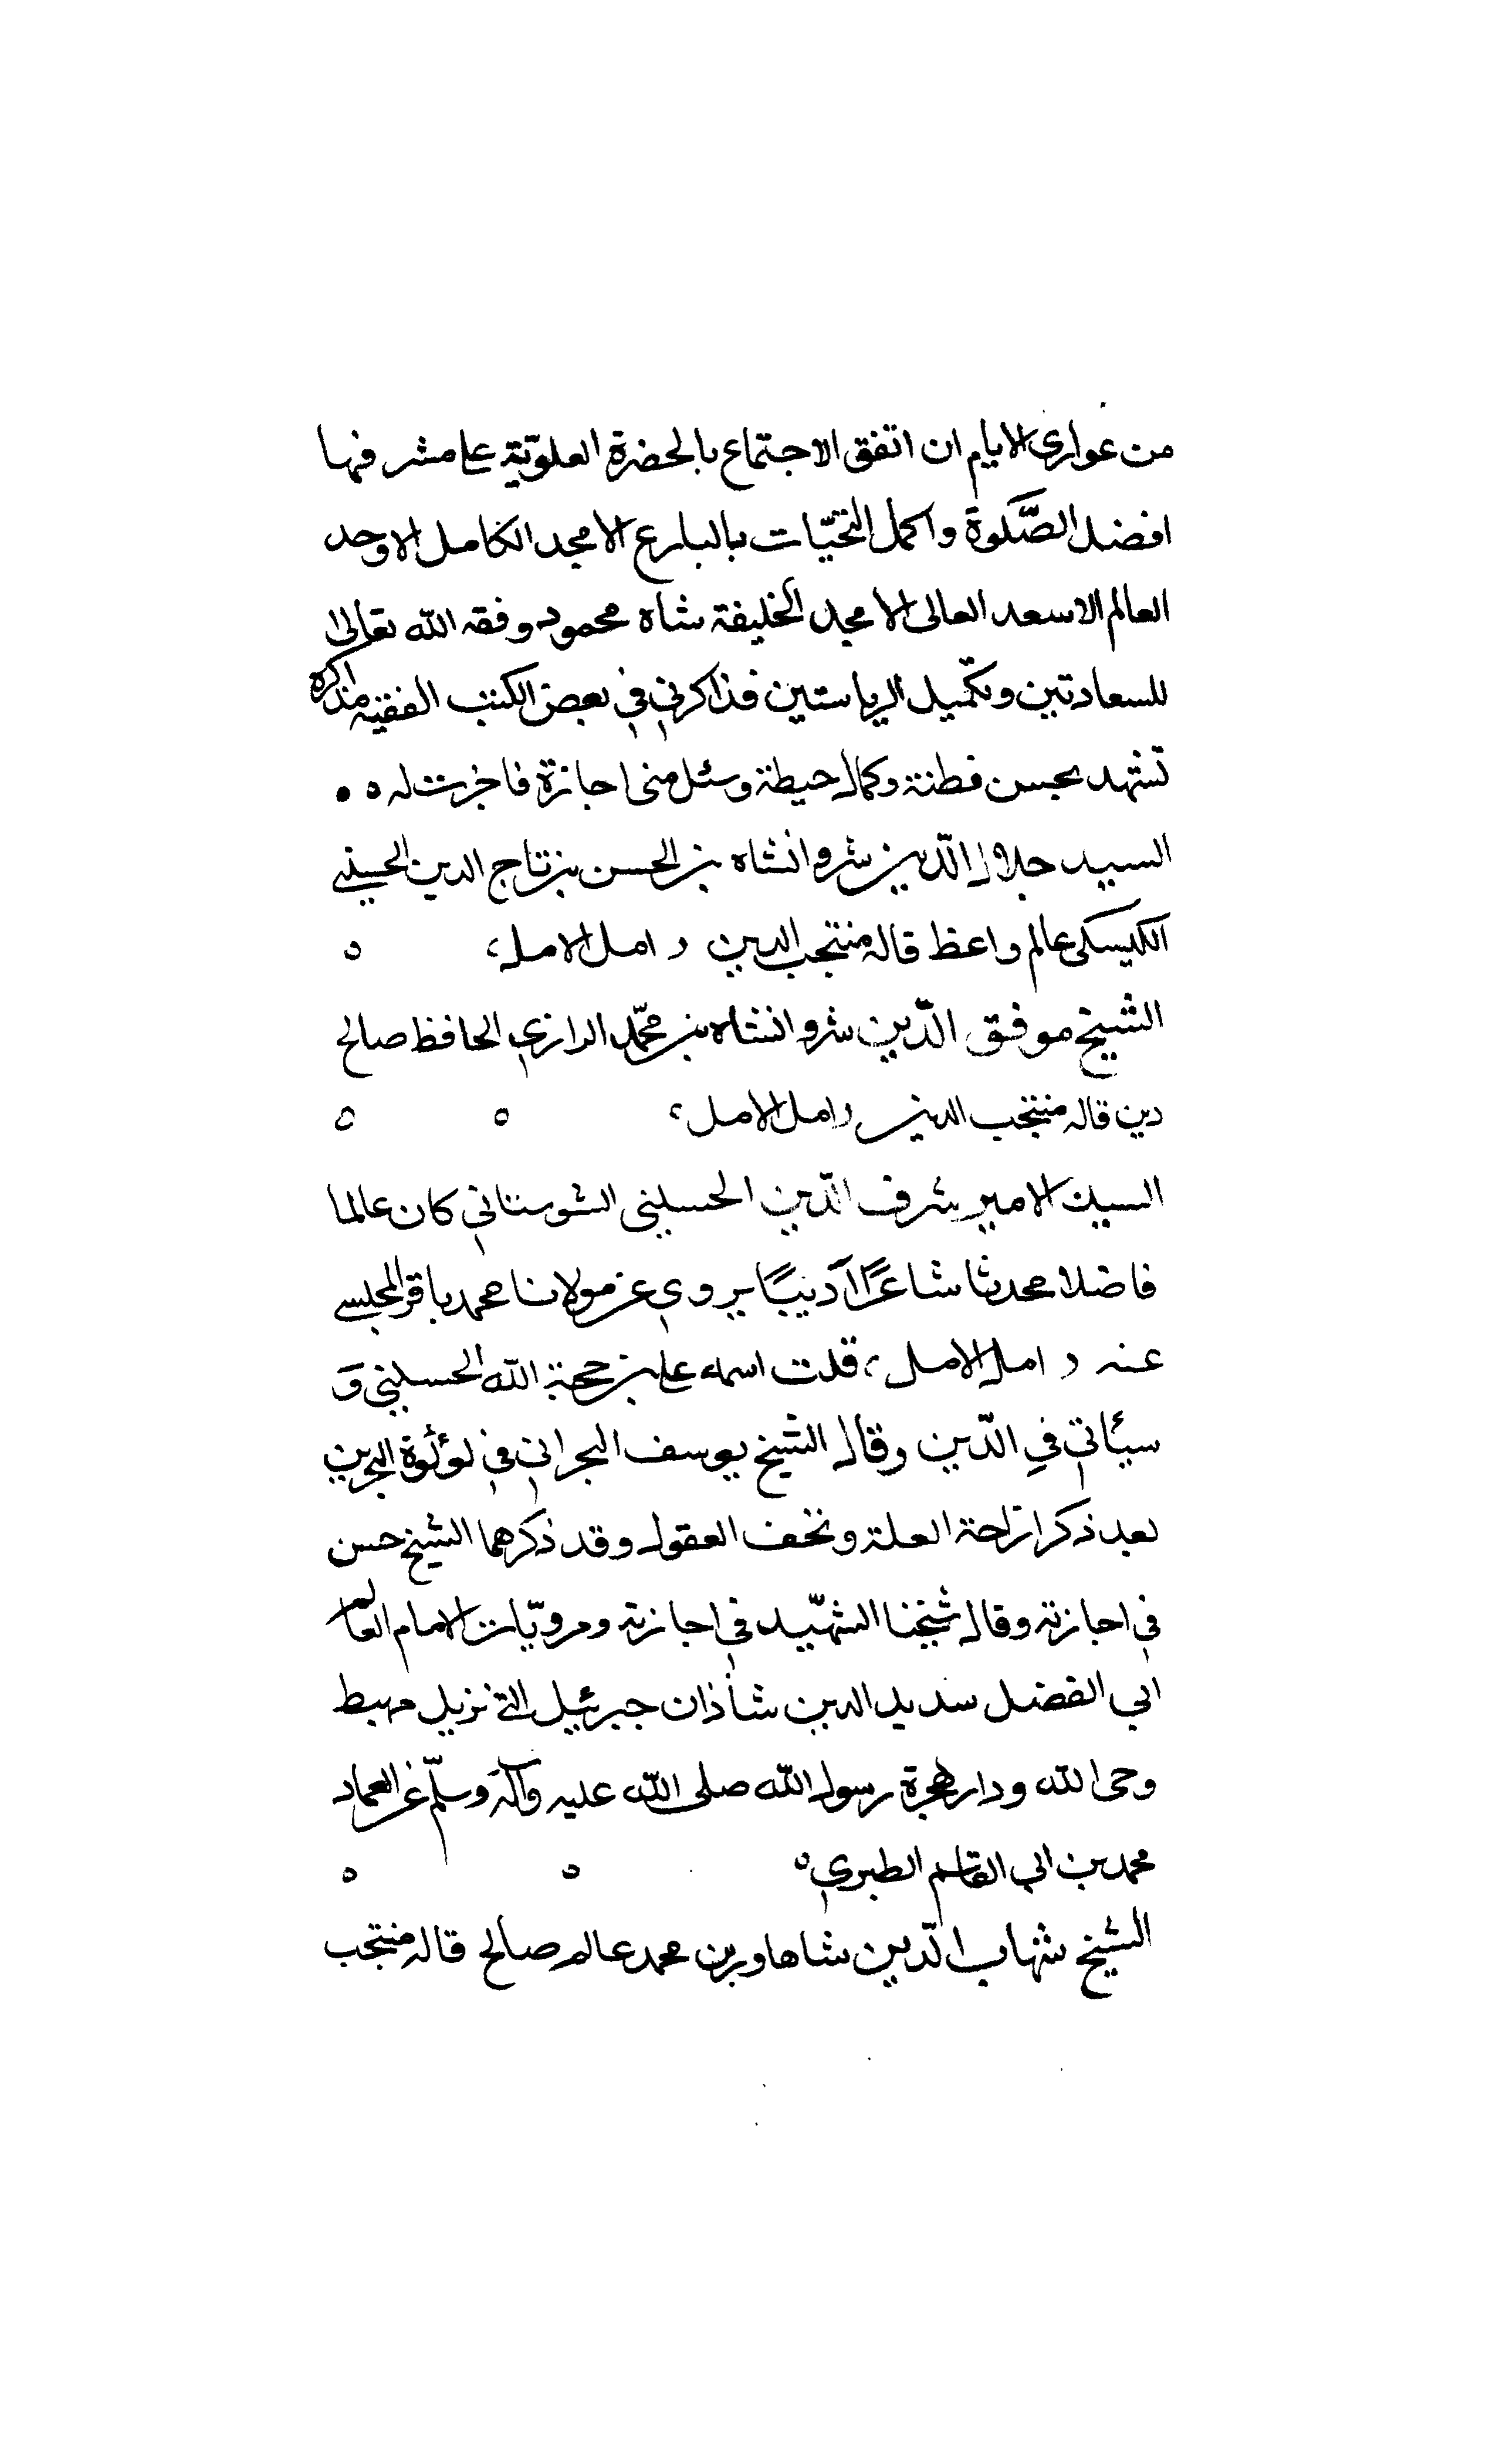 من عواري الايام ان اتفق الاجتماع بالحضرة العلويّة على مشرفها
افضل الصَّلوة واكمل التحيّات بالبارع الامجد الكامل الاوحد
العالم الاسعد العالى الامجد الخليفة شاه محمود وفقه الله تعالى
للسعادتين وتكميل الرياستين فذاكرني في بعض الكتب الفقيه مذاكرة
تشهد بحسن فطنة وكمال حيطة وسئل منى اجازة فاجزت له ه ٥
السيد جلال الدّين شروانشاه بن الحسن بن تاج الدين الحسيني
الكيسكى عالم واعظ قاله منتجب الدين ر امل الامل،  ه
الشيخ موفق الدّين شروانشاه بن محمّد الرازي الحافظ صالح
دين قاله منتجب الدين ر امل الامل،  ه  ه
السيد الامير شرف الدّين الحسينى الشوستاني كان عالما
فاضلا محدثا شاعرًا آديبًا يروي عن مولانا محمد باقر المجلسي
عنه ر امل الامل، قلت اسمه على بن حجة الله الحسيني وَ
سيئاتي في الدّين وقال الشيخ يوسف البحراني في لوٴلٴوة البحرين
بعد ذكر ازاحة العلة وتحف العقول وقد ذكرهما الشيخ حسن
في اجازته وقال شيخنا الشهّيد في اجازته ومرويّات الامام العالم
ابي الفضل سديد الدين شاذان جبرئيل التنزيل مهبط
وحى الله ودار هجرة رسول الله صلى الله عليه وآله وسلّم عن العماد
محمد بن ابي القاسم الطبري ه  ه  ه
الشيخ شهاب الدّين شاهاور بن محمد عالم صالح قاله منتجب